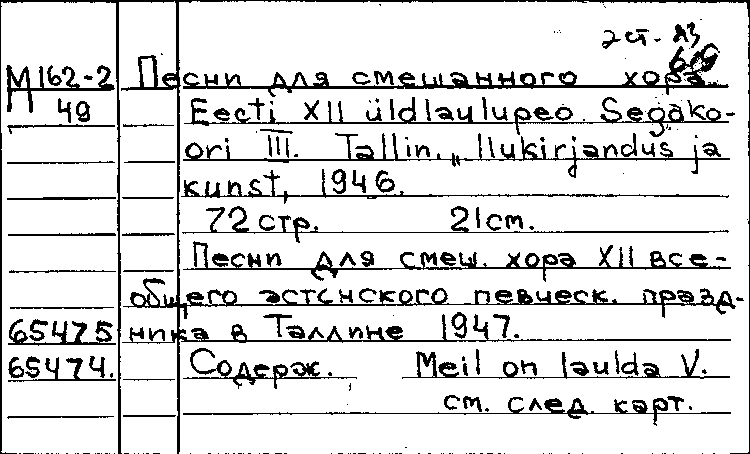 эст. АЗ
М 162-2 Песни для смешанного хора
П 49 Eesti XII üldlaulupeo Segako-
ori III. Tallin, „Ilukirjandus ja
kunst, 1946.
72 стр. 21 см.
Песни для смеш. хора XII все-
общего эстонского певческ. празд-
65475 ника в Таллине 1947.
65474. Содерж. Meil on laulda V.
см. след. карт.